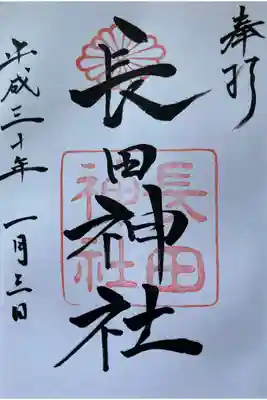 奉拝
長田神社
長田
神社
平成三十年 一月三日